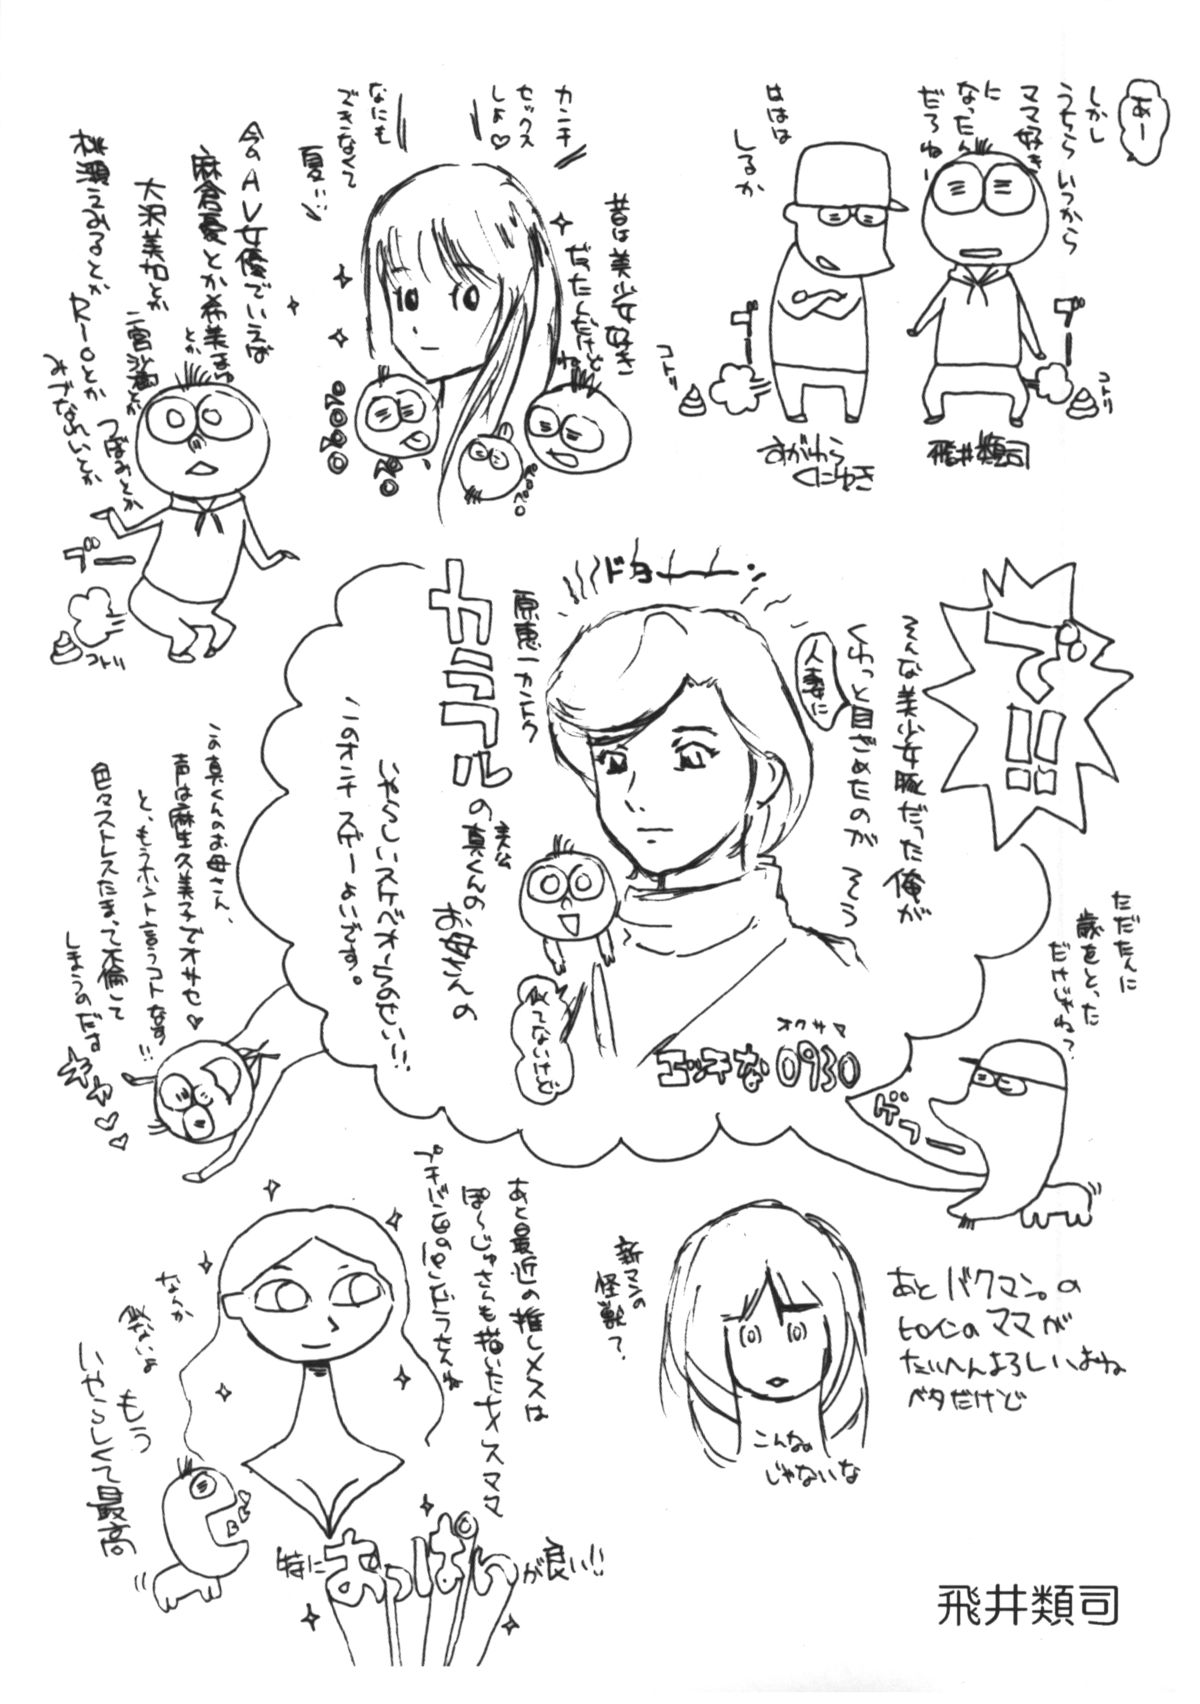 あー
しかし
うちらいつから
ママ好き
に
なったん
だろねー
ブー
コトリ
飛井類司
ははは
しるか
ブー
コトリ
すがわら
くにゆき
カンチ
セックス
しよ♡
なにも
できなくて
夏!!
昔は美少女好き
だったんだけど
ね
ペロペロ
今のAV女優でいえば
麻倉憂とか希美まゆ
とか
大沢美加とか
二宮沙樹とか
つぼみとか
桃瀬えみるとか
Rioとか
みづなれいとか
ブー
コトリ
で!!
そんな美少女豚だった俺が
くわっと目ざめたのが そう
人妻に
ドヨーーーン
原恵一カントク
カラフルの
主人公
真くんの
お母さんの
いやらしいスケベオーラのせい!!
このオンナ スゲーよいです。
似てないけど
オクサマ
エッチな0930
ただたんに
歳をとった
だけじゃね?
ゲフー
この真くんのお母さん、
声は麻生久美子でオサセ♥
と、もうホント言うコトなす!!
色々ストレスたまって不倫して
しまうのだす
キャ♡♡
あと最近の推しメスは
ぽ〜じゅさらも描いたメスママ
特におっぱいが良い!!
なんか
似ないよ
もう
いやらしくて最高
新マンの
怪獣?
こんなの
じゃないな
あとバクマン。の
ヒロインのママが
たいへんよろしいよね
ベタだけど
飛井類司